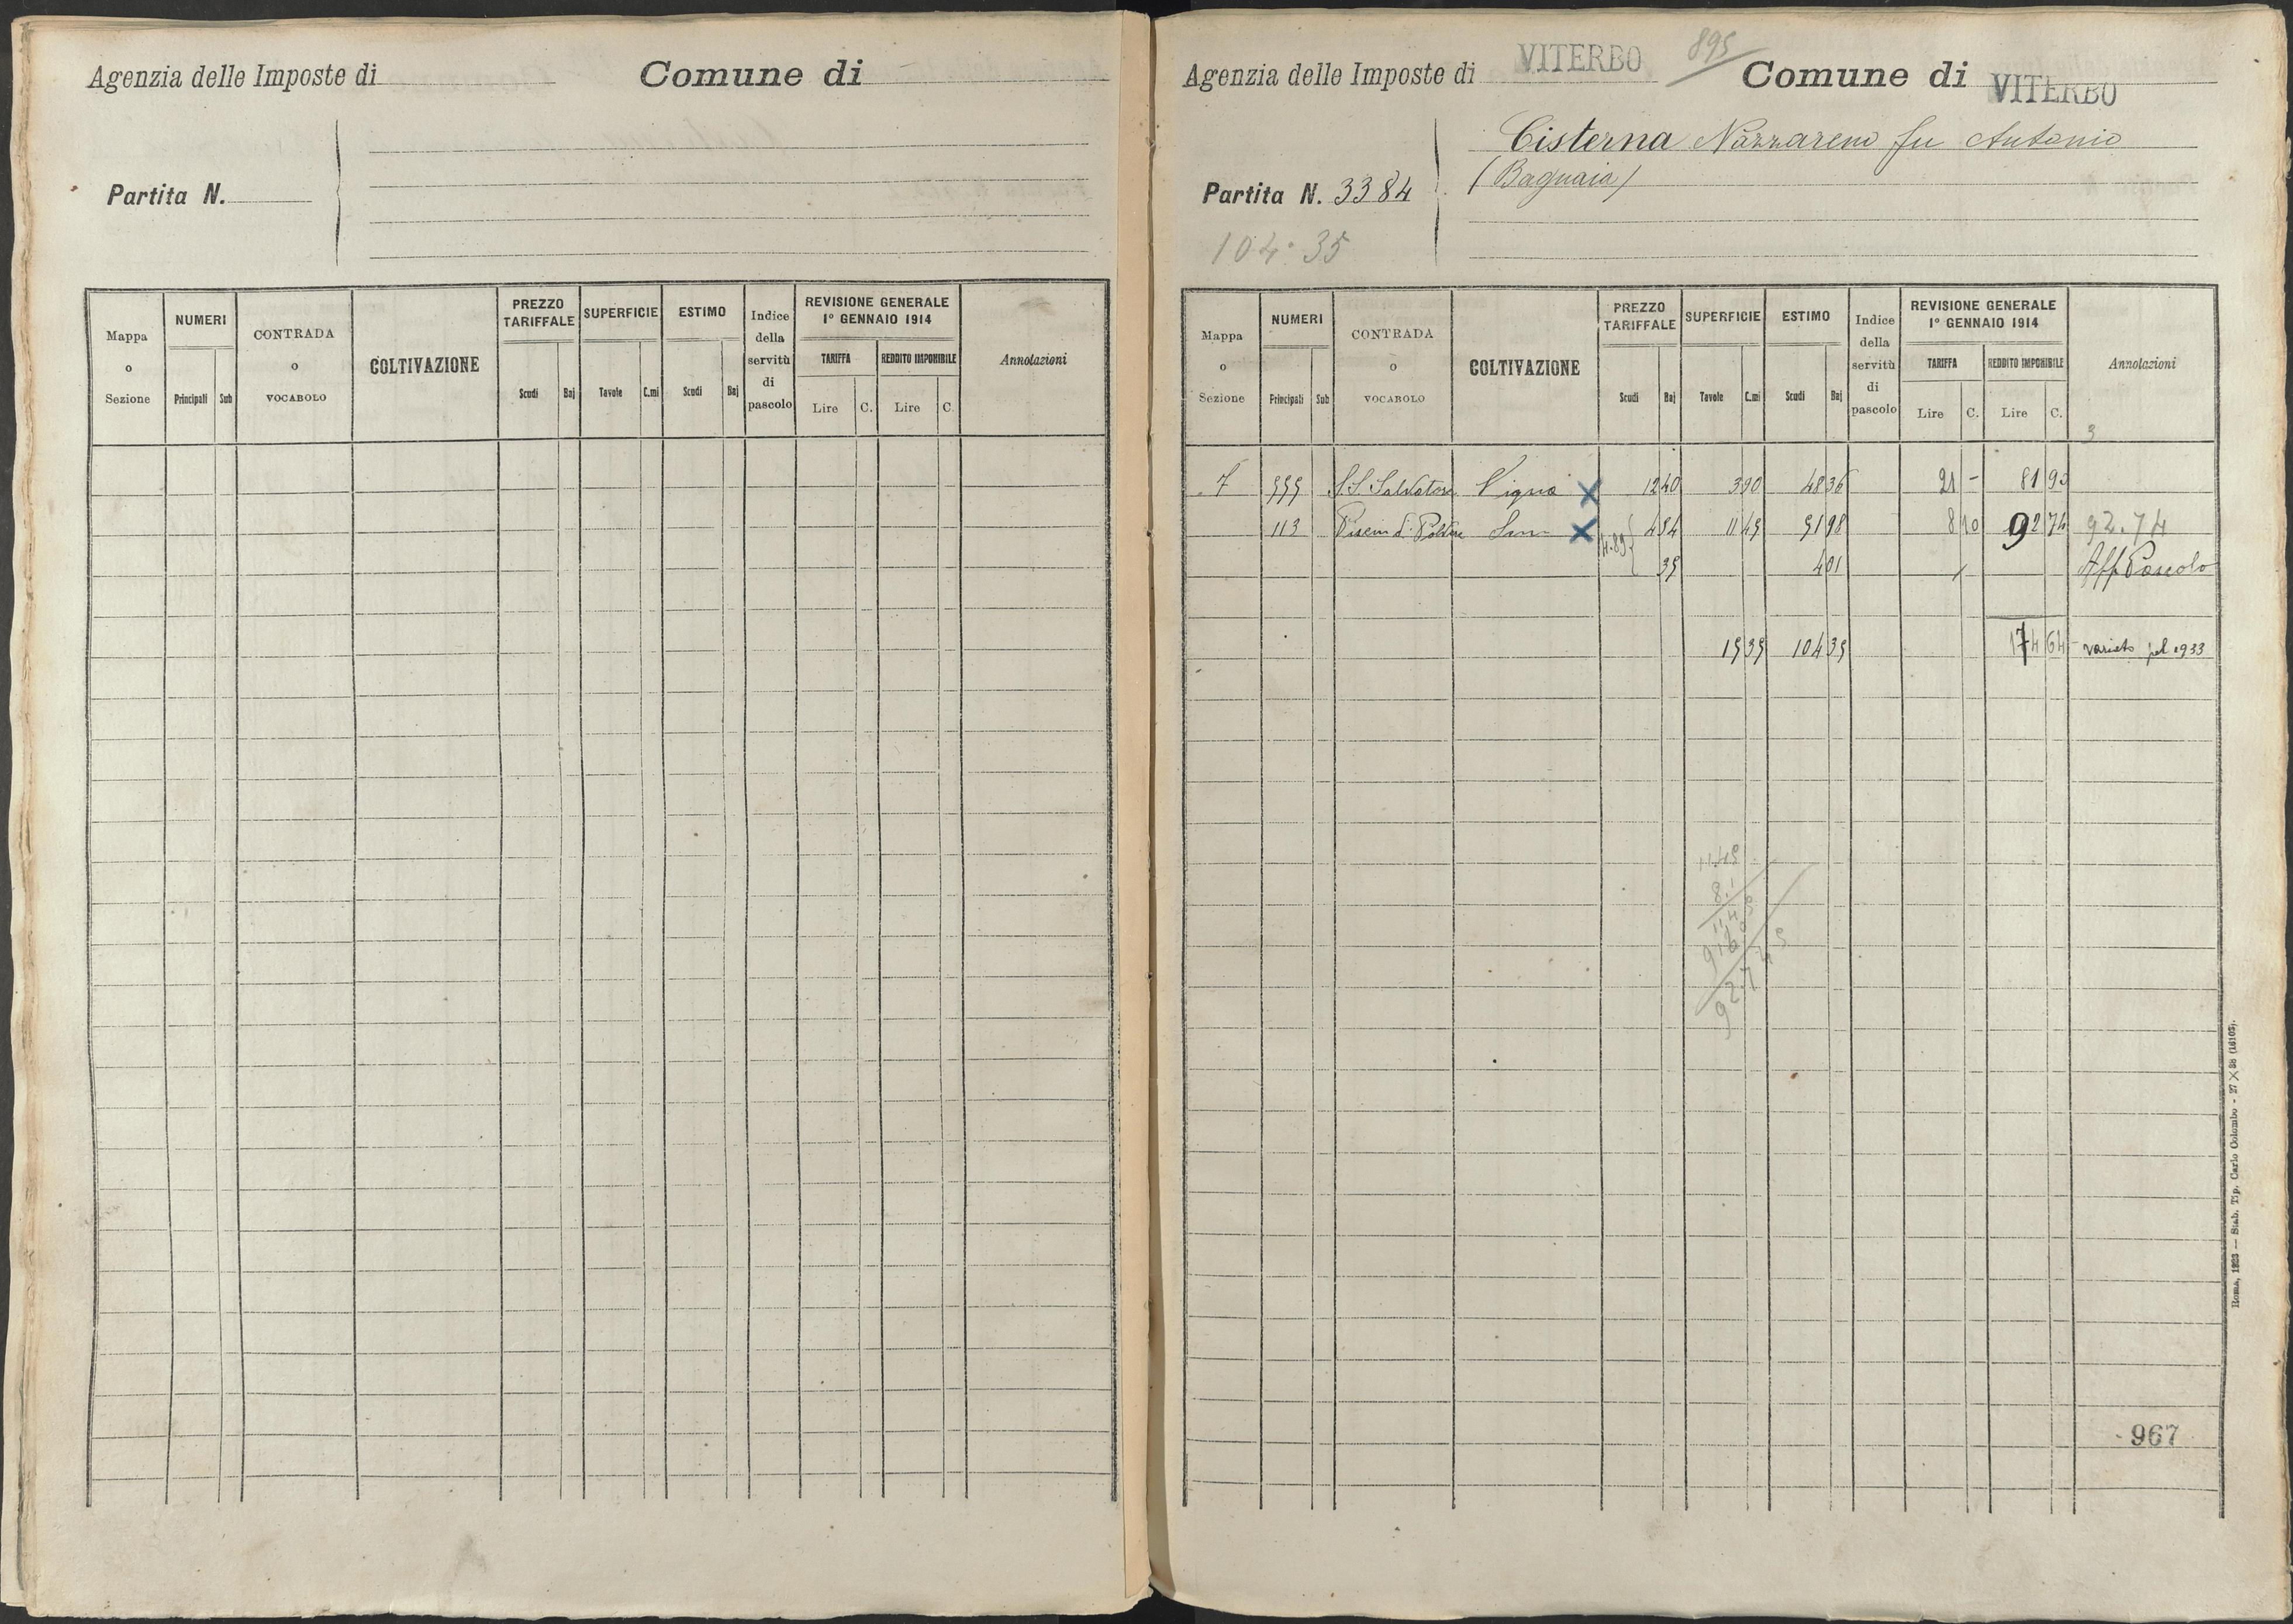 Agenzia delle Imposte di
Comune di
Partita N.
Mappa o Sezione
NUMERI
Principali
Sub
CONTRADA o VOCABOLO
COLTIVAZIONE
PREZZO TARIFFALE
Scudi
Baj
SUPERFICIE
Tavole
C.mi
ESTIMO
Scudi
Baj
Indice della servitù di pascolo
REVISIONE GENERALE
1° GENNAIO 1914
TARIFFA
REDDITO IMPONIBILE
Lire
C.
Lire
C.
Annotazioni
Agenzia delle Imposte di VITERBO
895
Comune di VITERBO
Cisterna Nazzareno fu Antonio
(Bagnaia)
Partita N. 3384
104.35
Mappa o Sezione
NUMERI
Principali
Sub
CONTRADA o VOCABOLO
COLTIVAZIONE
PREZZO TARIFFALE
Scudi
Baj
SUPERFICIE
Tavole
C.mi
ESTIMO
Scudi
Baj
Indice della servitù di pascolo
REVISIONE GENERALE
1° GENNAIO 1914
TARIFFA
REDDITO IMPONIBILE
Lire
C.
Lire
C.
Annotazioni
3
7 555 S.S. Salvatore Vigna X 12 40 3 90 48 36 21 - 81 90
113 X 4 54 11 45 51 98 8 10 92 74 92.74
35 4 01 Aff Pascolo
15 35 104 35 174 64 variato pel 1933
11.45
8.1
1145
9160
92.745
967
Roma, 1923 — Stab. Tip. Carlo Colombo - 27 X 38 (16105).